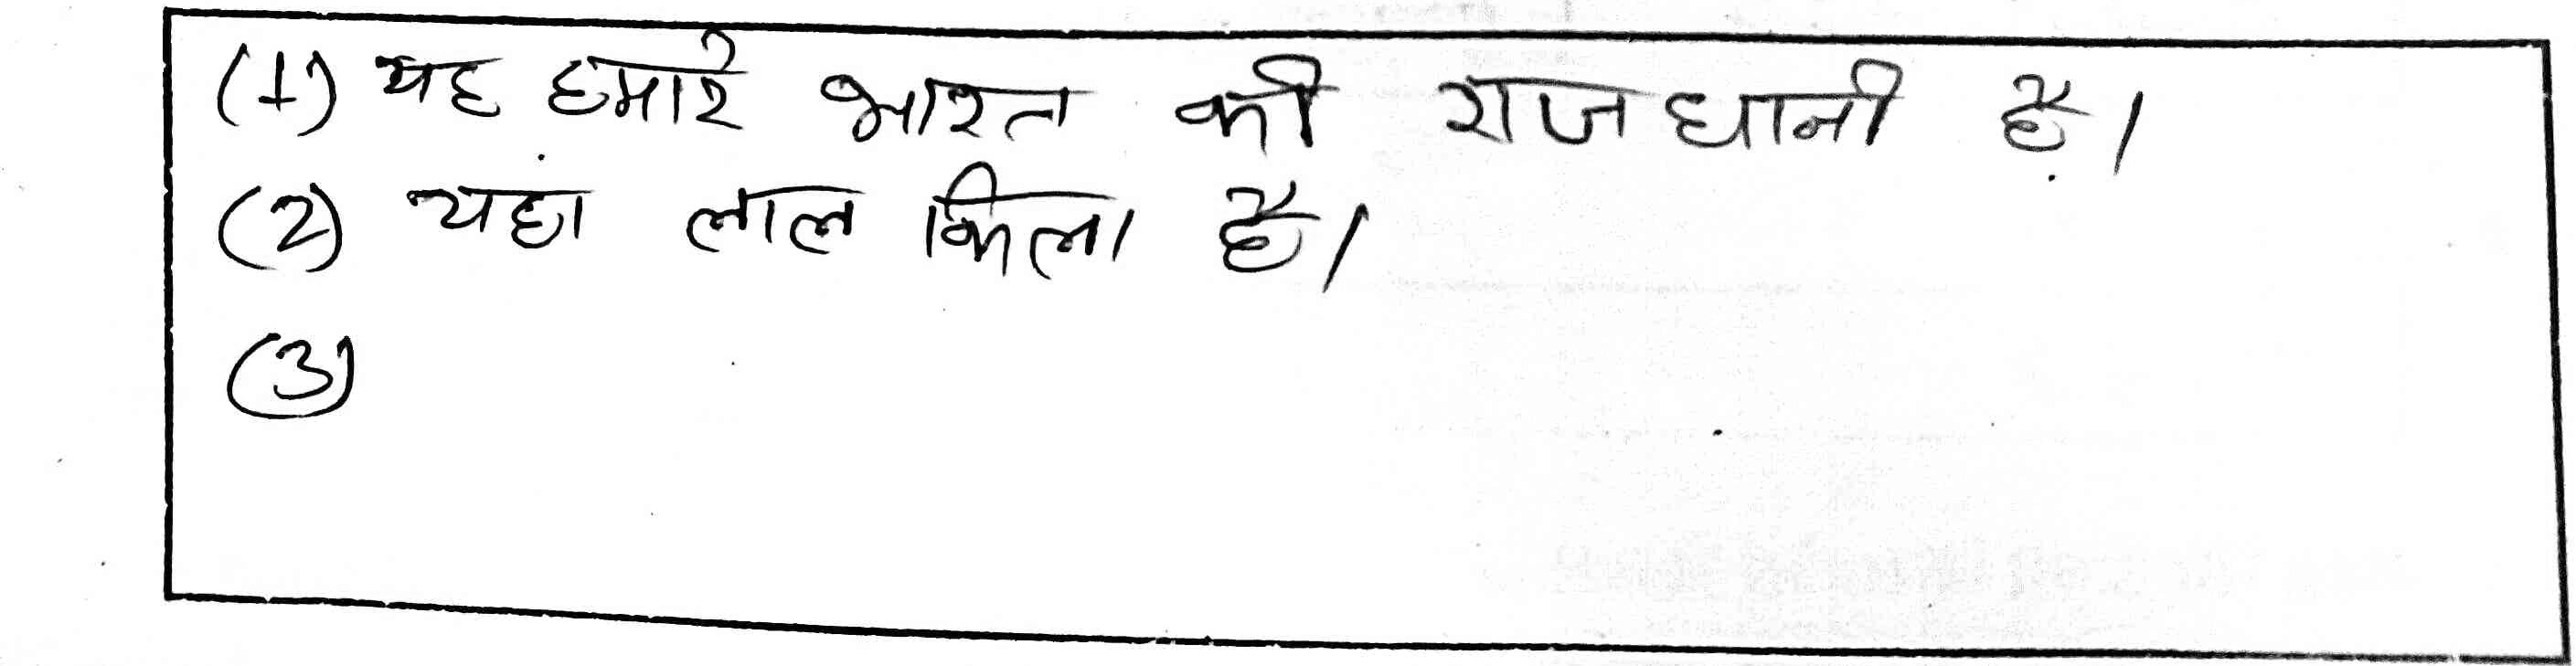 (1) यह हमारे भारत की राजधानी है।
(2) यहां लाल किला है।
(3)